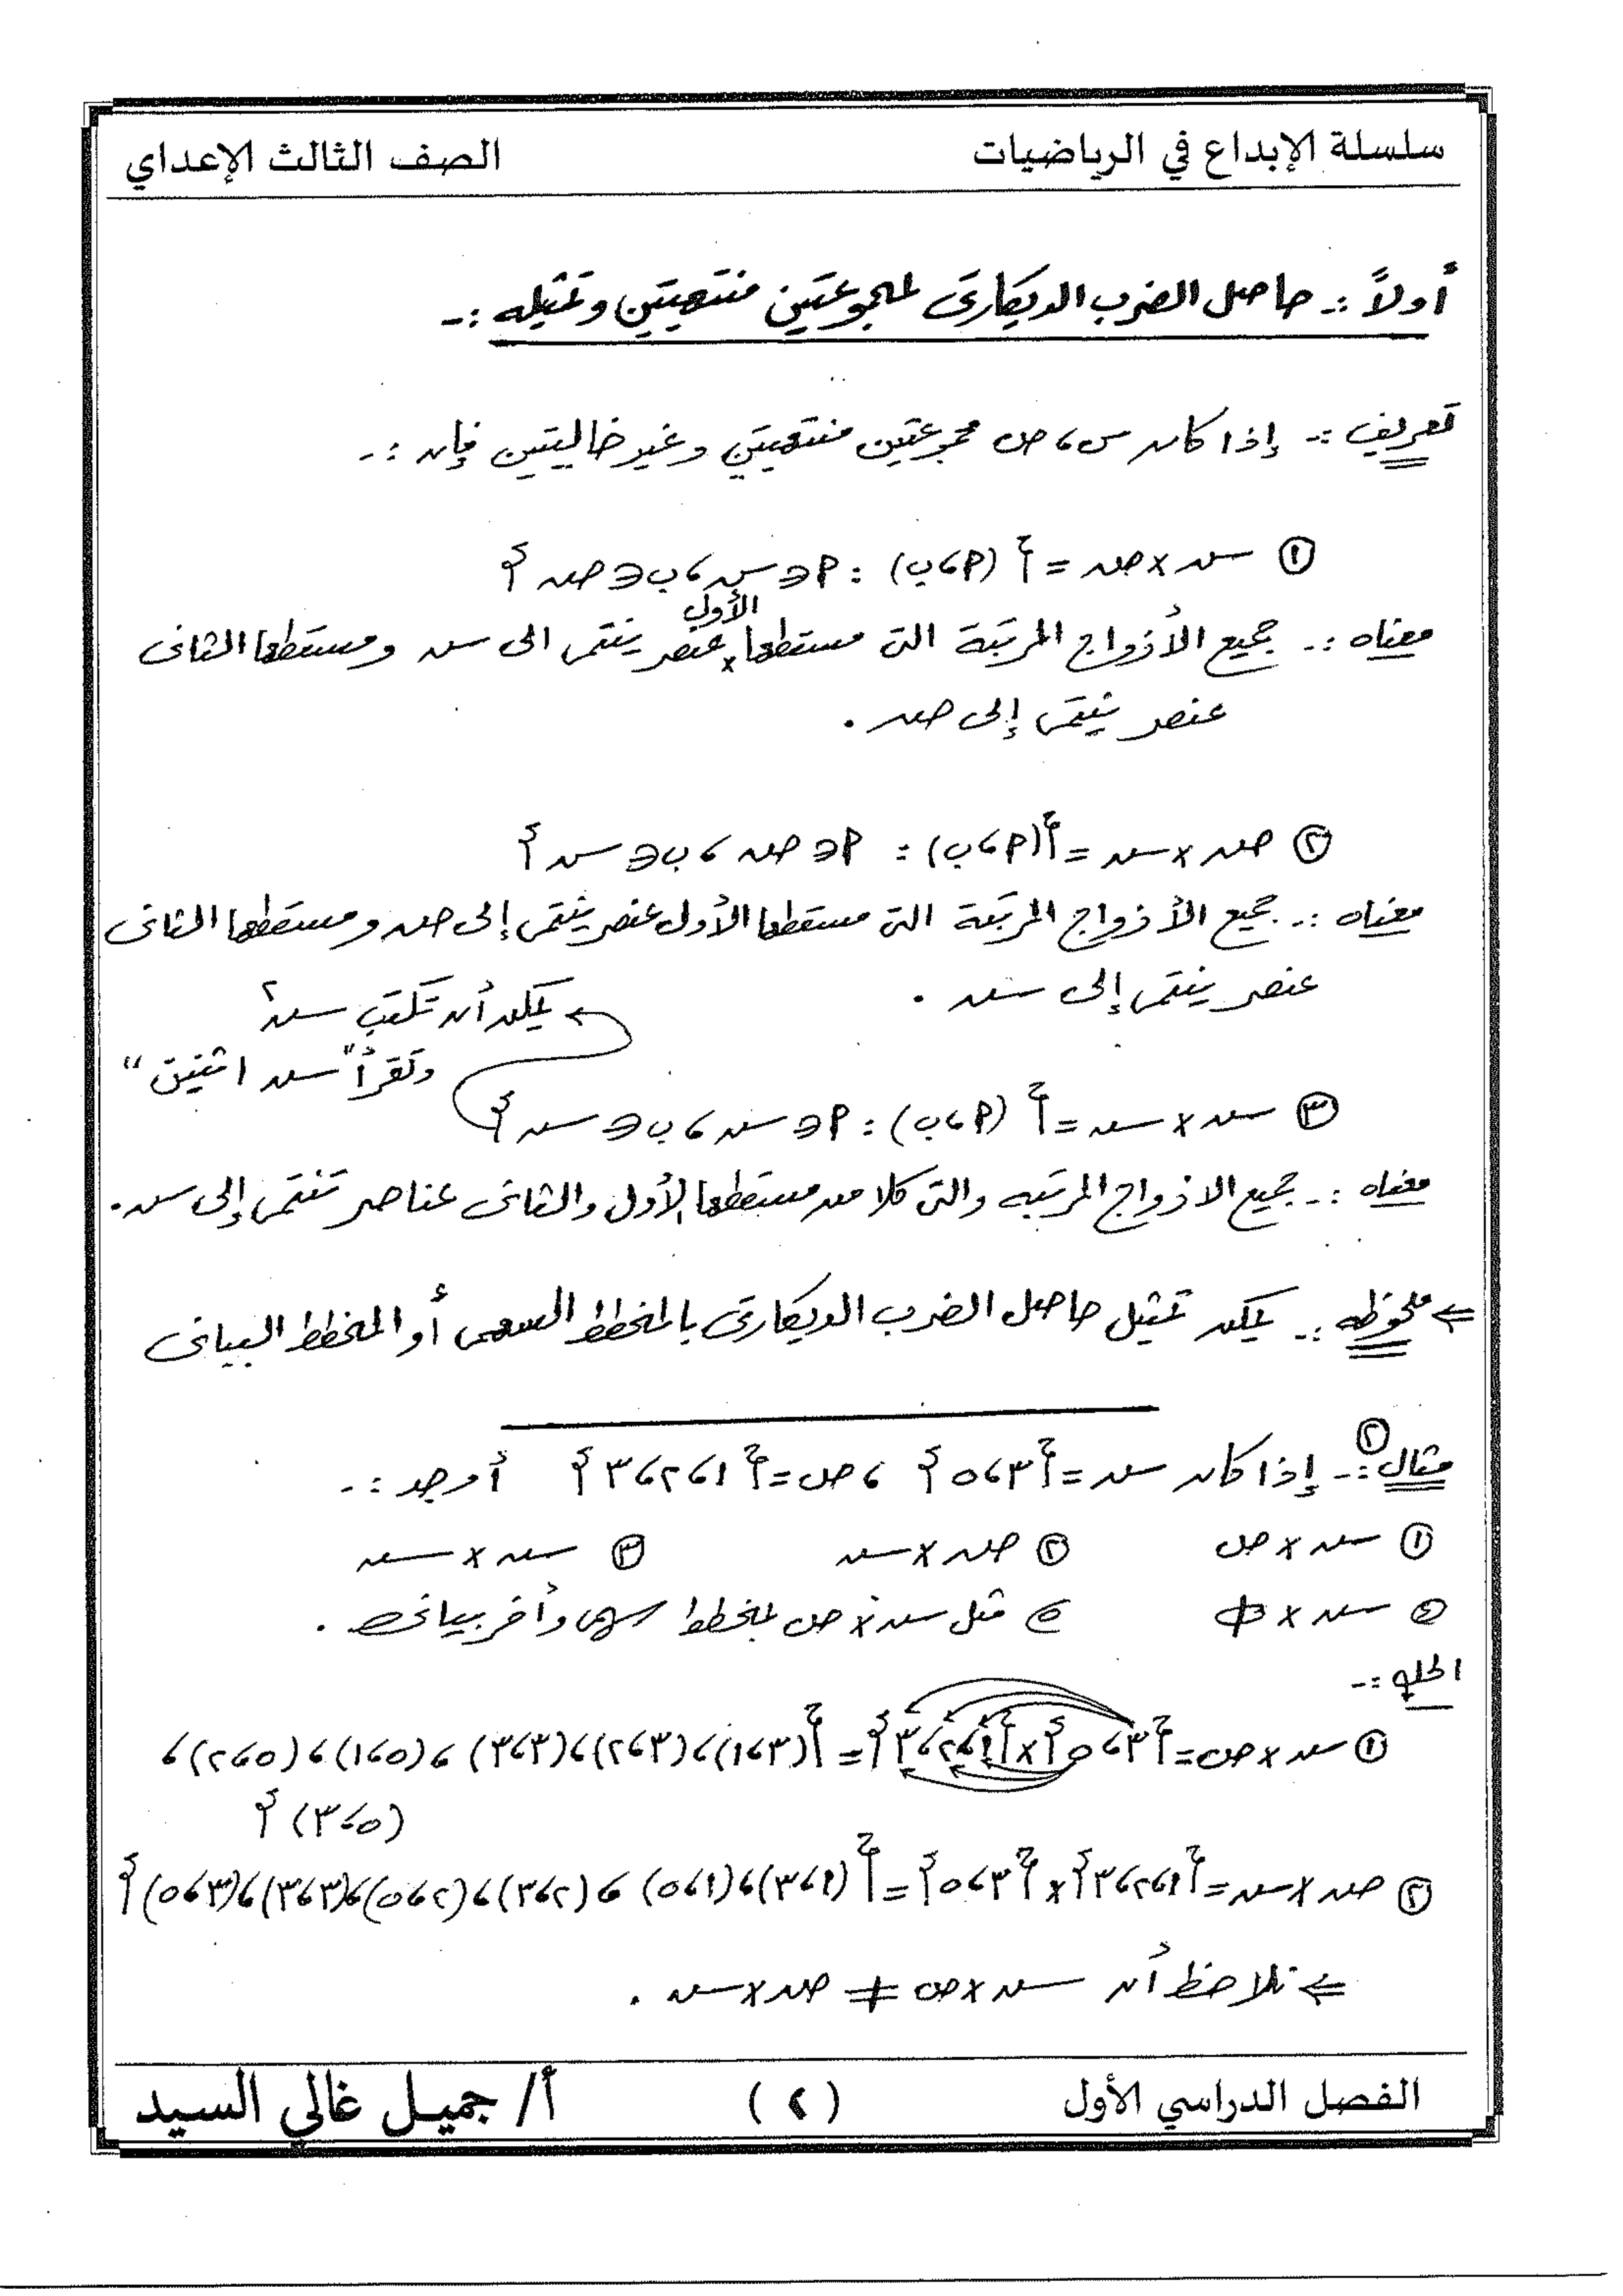 سلسلة الإبداع في الرياضيات
الصف الثالث الإعداي
أولاً :- حاصل الضرب الديكارتى لمجموعتين منتهيتين وتمثيله :-
تعريف :- إذا كان س ، ص مجموعتين منتهيتين وغير خاليتين فإن :-
① س × ص = { (م ، ب) : م ∈ س ، ب ∈ ص }
معناه :- جميع الأزواج المرتبة التى مسقطها الأول عنصر ينتمى الى س ومسقطها الثانى
عنصر ينتمى إلى ص .
② ص × س = { (م ، ب) : م ∈ ص ، ب ∈ س }
معناه :- جميع الأزواج المرتبة التى مسقطها الأول عنصر ينتمى إلى ص ومسقطها الثانى
عنصر ينتمى إلى س .
يمكن أن تكتب س²
وتقرأ "س اثنين"
③ س × س = { (م ، ب) : م ∈ س ، ب ∈ س }
معناه :- جميع الازواج المرتبه والتى كلا من مسقطها الأول والثانى عناصر تنتمى إلى س .
⇐ ملحوظه :- يمكن تمثيل حاصل الضرب الديكارتى بالمخطط السهمى أو المخطط البيانى
مثال ② :- إذا كان س = { ٣ ، ٥ } ، ص = { ١ ، ٢ ، ٣ } أوجد :-
① س × ص ② ص × س ③ س × س
④ س × ϕ ⑤ مثل س × ص بمخطط سهمى وأخر بيانى .
الحل :-
① س × ص = { ٣ ، ٥ } × { ١ ، ٢ ، ٣ } = { (٣ ، ١) ، (٣ ، ٢) ، (٣ ، ٣) ، (٥ ، ١) ، (٥ ، ٢) ،
(٥ ، ٣) }
② ص × س = { ١ ، ٢ ، ٣ } × { ٣ ، ٥ } = { (١ ، ٣) ، (١ ، ٥) ، (٢ ، ٣) ، (٢ ، ٥) ، (٣ ، ٣) ، (٣ ، ٥) }
⇐ نلاحظ أن س × ص ≠ ص × س .
الفصل الدراسي الأول
( ٢ )
أ/ جميل غالي السيد